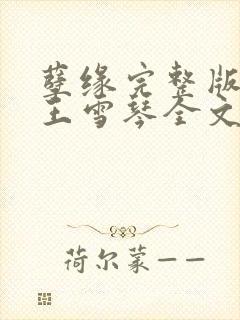 孽缘完整版
王雪琴全文
荷尔蒙——